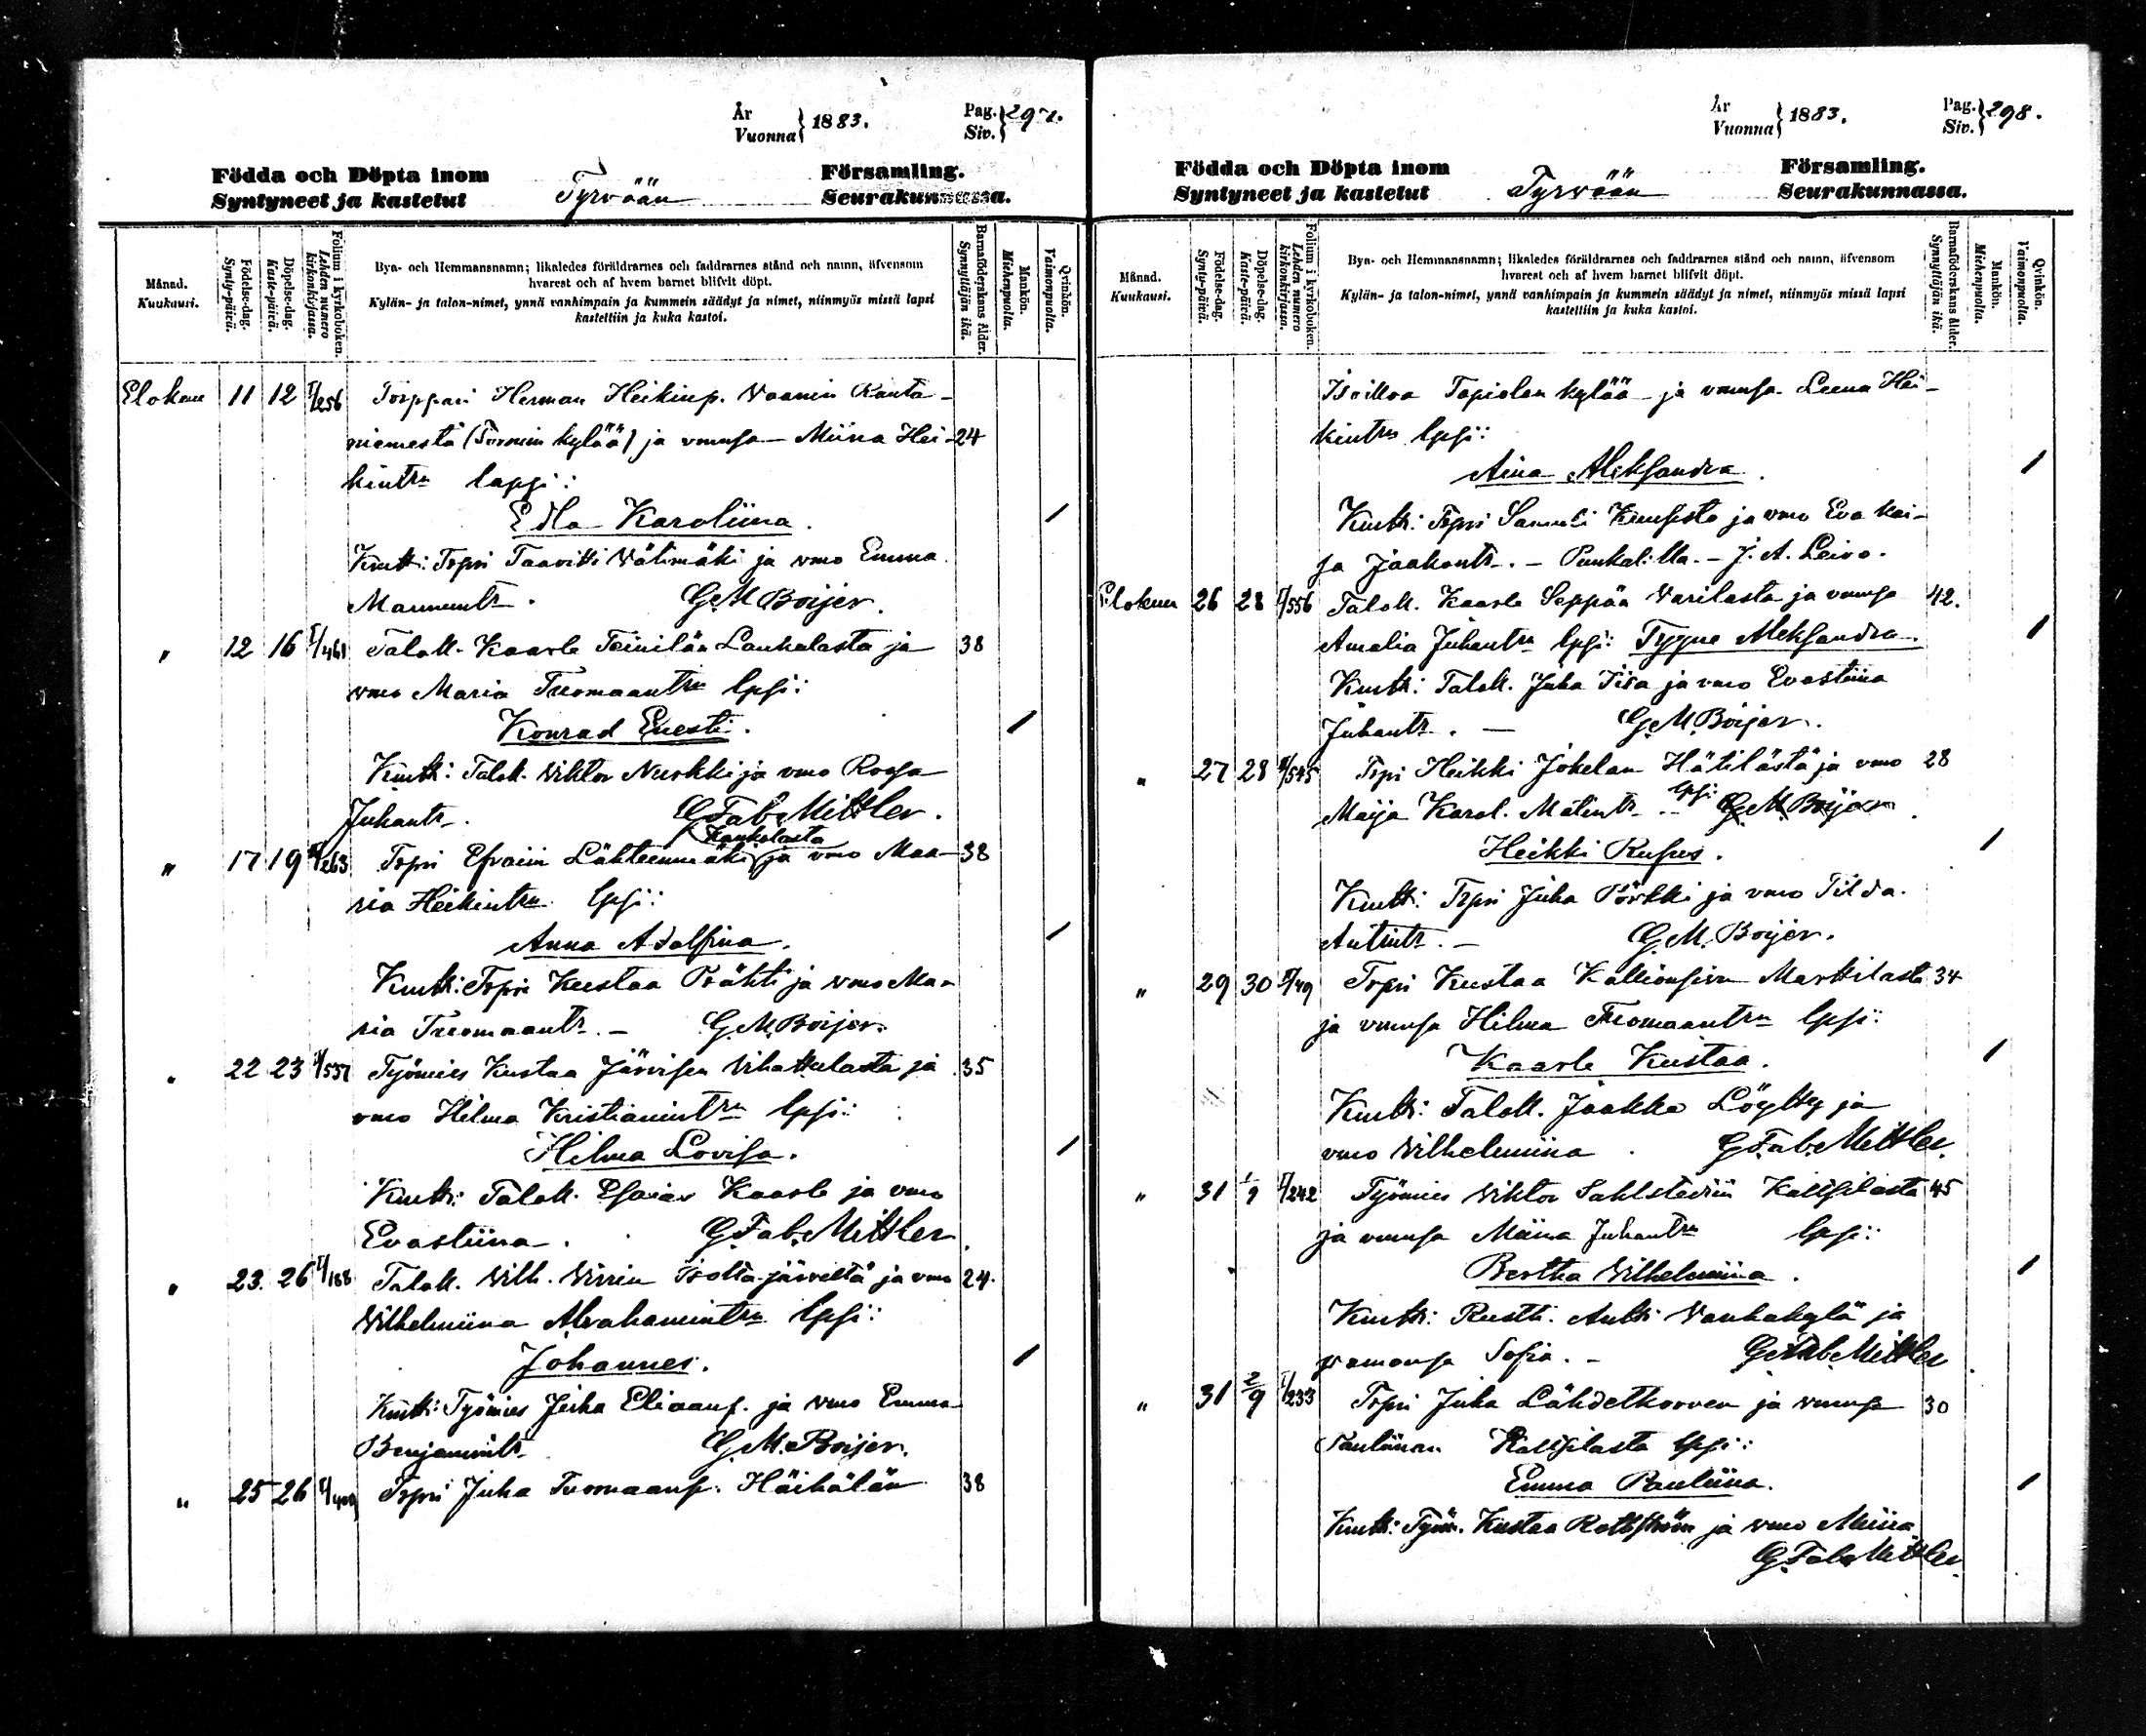 År
Vuonna } 1883.
Pag.
Siv. } 297.
Födda och Döpta inom Tyrvään Församling.
Syntyneet ja kastetut Seurakunnassa.
Månad.
Kuukausi.
Födelse-dag.
Synty-päivä.
Döpelse-dag.
Kaste-päivä.
Folium i kyrkoboken.
Lehden numero kirkonkirjassa.
Bya- och Hemmansnamn; likaledes föräldrarnes och faddrarnes stånd och namn, äfvensom
hvarest och af hvem barnet blifvit döpt.
Kylän- ja talon-nimet, ynnä vanhimpain ja kummein säädyt ja nimet, niinmyös missä lapsi
kastettiin ja kuka kastoi.
Barnaföderskans ålder.
Synnyttäjän ikä.
Mankön.
Miehenpuolta.
Qvinkön.
Vaimonpuolta.
Elokuu 11 12 I/256 Torppari Herman Heikinp. Vaanin Ranta-
niemestä (Tornin kylää) ja vmnsa Miina Hei- 24
kintr lapsi:
Edla Karoliina.
Kmtt: Trpri Taavitti Wätimäki ja vmo Emma
Mannuntr. G.M. Boijer.
" 12 16 I/461 Taloll. Kaarle Teinilän Laukulasta ja 38
vmo Maria Tuomaantr lpsi:
Konrad Enesti.
Kmtt: Talok. Wiktor Nurkki ja vmo Roosa
Juhantr. G. Fab. Mittler.
Kaukolasta
" 17 19 /263 Trpri Efraim Lähteenmäki ja vmo Maa- 38
ria Heikintr lpsi:
Anna Adolfina.
Kmtt: Trpri Kustaa Prähti ja vmo Maa
ria Tuomaantr. G.M. Boijer.
" 22 23 /557 Työmies Kustaa Järvisen Vihattulasta ja 35
vmo Hilma Kristianintr lpsi:
Hilma Lovisa.
Kmtt: Talok. Esaias Kaarle ja vmo
Evastiina. G. Fab. Mittler.
" 23. 26 I/188 Talok. Wilh. Wirrin Isolta-järveltä ja vmo 24.
Wilhelmiina Abrahamintr lpsi:
Johannes.
Kmtt: Työmies Juha Eliaanp. ja vmo Emma
Benjamintr. G.M. Boijer.
" 25 26 I/409 Trpri Juha Tuomaanp. Häihälän 38
År
Vuonna } 1883.
Pag.
Siv. } 298.
Födda och Döpta inom Tyrvään Församling.
Syntyneet ja kastetut Seurakunnassa.
Månad.
Kuukausi.
Födelse-dag.
Synty-päivä.
Döpelse-dag.
Kaste-päivä.
Folium i kyrkoboken.
Lehden numero kirkonkirjassa.
Bya- och Hemmansnamn; likaledes föräldrarnes och faddrarnes stånd och namn, äfvensom
hvarest och af hvem barnet blifvit döpt.
Kylän- ja talon-nimet, ynnä vanhimpain ja kummein säädyt ja nimet, niinmyös missä lapsi
kastettiin ja kuka kastoi.
Barnaföderskans ålder.
Synnyttäjän ikä.
Mankön.
Miehenpuolta.
Qvinkön.
Vaimonpuolta.
Tapiolan kylää ja vmnsa Leena Hei-
kintr lpsi:
Aina Aleksandra.
Kmtt: Trpri Samuli ja vmo Eva Kai-
sa Jaakontr. - Punkal:lla. - J. A. Leivo.
Elokuu 26 28 I/556 Talok. Kaarle Seppän Varilasta ja vmnsa 42.
Amalia Juhantr lpsi: Tyyne Aleksandra.
Kmtt: Talok. Juha Iisa ja vmo Evastiina
Juhantr. - G.M. Boijer.
" 27 28 /545 Trpi Heikki Jokelan Hätilästä ja vmo 28
Maija Karol. Matintr lpsi: G.M. Boijer
Heikki Rufus.
Kmtt: Trpri Juha Pörkki ja vmo Tilda
Antintr. - G.M. Boijer.
" 29 30 /49 Trpri Kustaa Kallionsivu Markkilasta 34
ja vmnsa Hilma Tuomaantr lpsi:
Kaarle Kustaa.
Kmtt: Talok. Jaakko Löytty ja
vmo Wilhelmiina. G. Fab. Mittler.
" 31 1/9 I/242 Työmies Wiktor Sahlstedtin Kallsilasta 45
ja vmnsa Miina Juhantr lpsi:
Bertha Wilhelmiina.
Kmtt: Rustt. Antti Vanhakylä ja
vamonsa Sofia. - G. Fab. Mittler
" 31 2/9 I/233 Trpri Juha Lähdetkorven ja vmnsa 30
Pauliinan Kallsilasta lpsi:
Emma Pauliina.
Kmtt: Työm. Kustaa Rothström ja vmo Miina
G. Fab. Mittler.